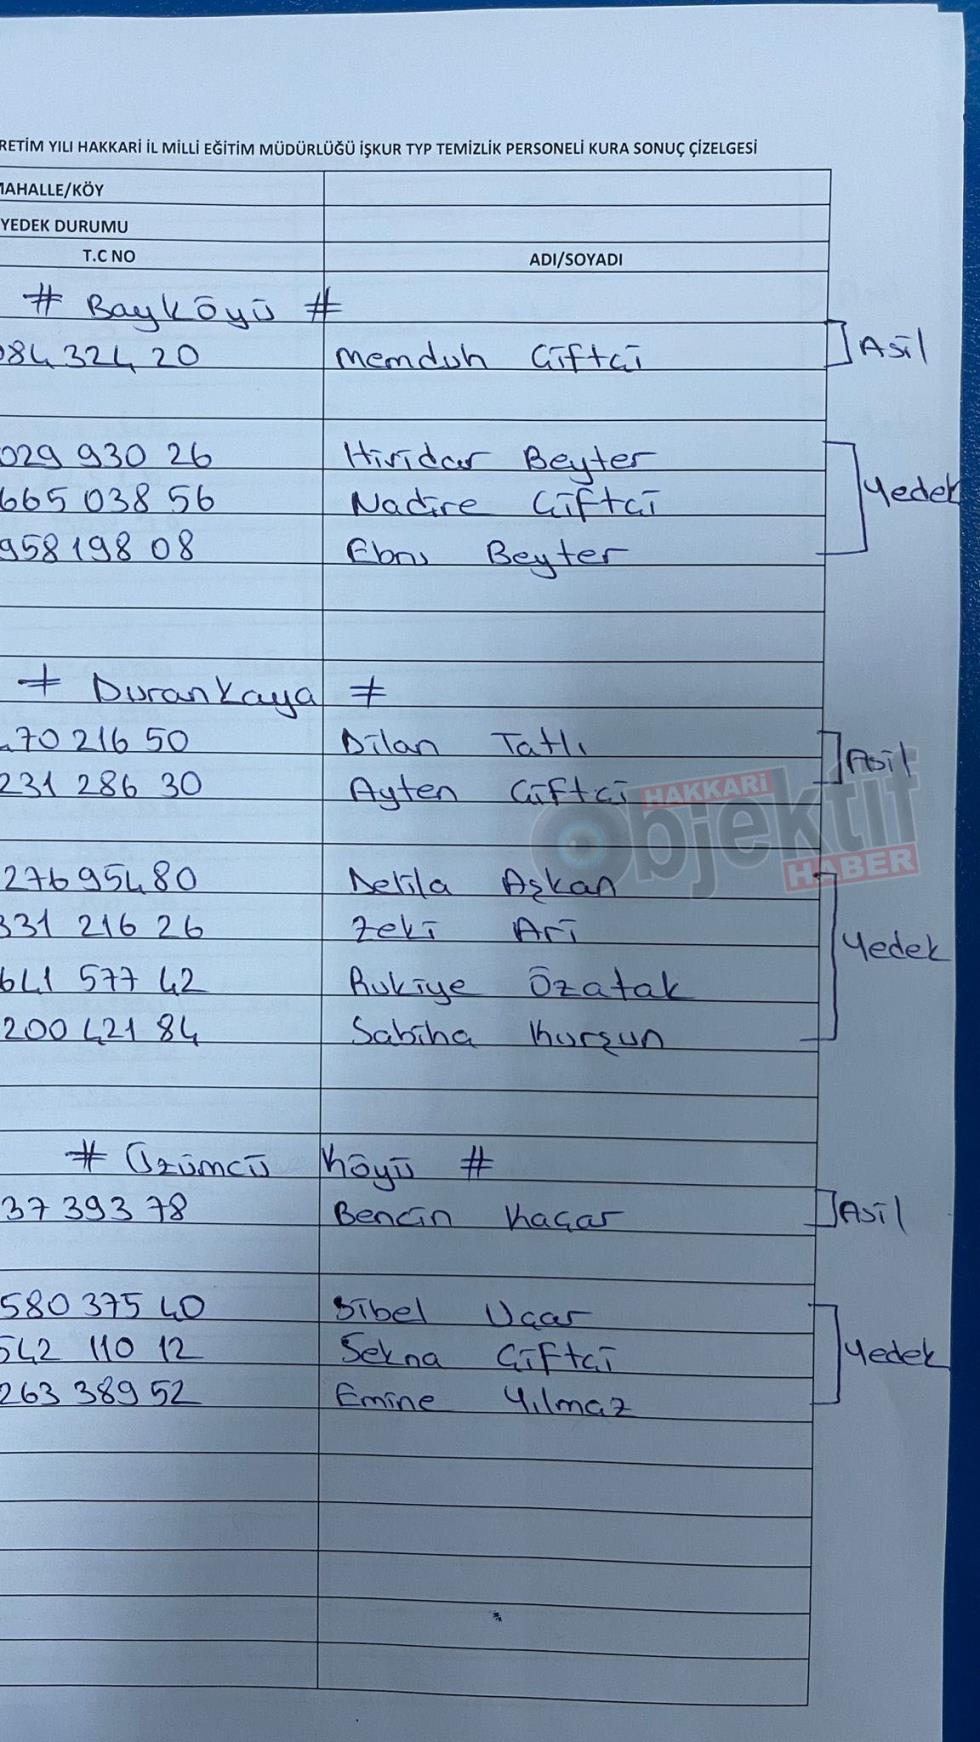 RETİM YILI HAKKARİ İL MİLLİ EĞİTİM MÜDÜRLÜĞÜ İŞKUR TYP TEMİZLİK PERSONELİ KURA SONUÇ ÇİZELGESİ
MAHALLE/KÖY
YEDEK DURUMU
T.C NO ADI/SOYADI
# Bayköyü #
084 324 20 Memduh Çiftçi Asil
029 930 26 Hividar Beyter
665 038 56 Nadire Çiftçi Yedek
958 198 08 Ebru Beyter
# Durankaya #
70 216 50 Dilan Tatlı Asil
231 286 30 Ayten Çiftçi
HAKKARİ
Objektif
HABER
276 954 80 Delila Aşkan
331 216 26 Zeki Ari Yedek
641 577 42 Rukiye Özatak
200 421 84 Sabiha Kurşun
# Üzümcü Köyü #
37 393 78 Bencin Kaçar Asil
580 375 40 Sibel Uçar
542 110 12 Sekna Çiftçi Yedek
263 389 52 Emine Yılmaz